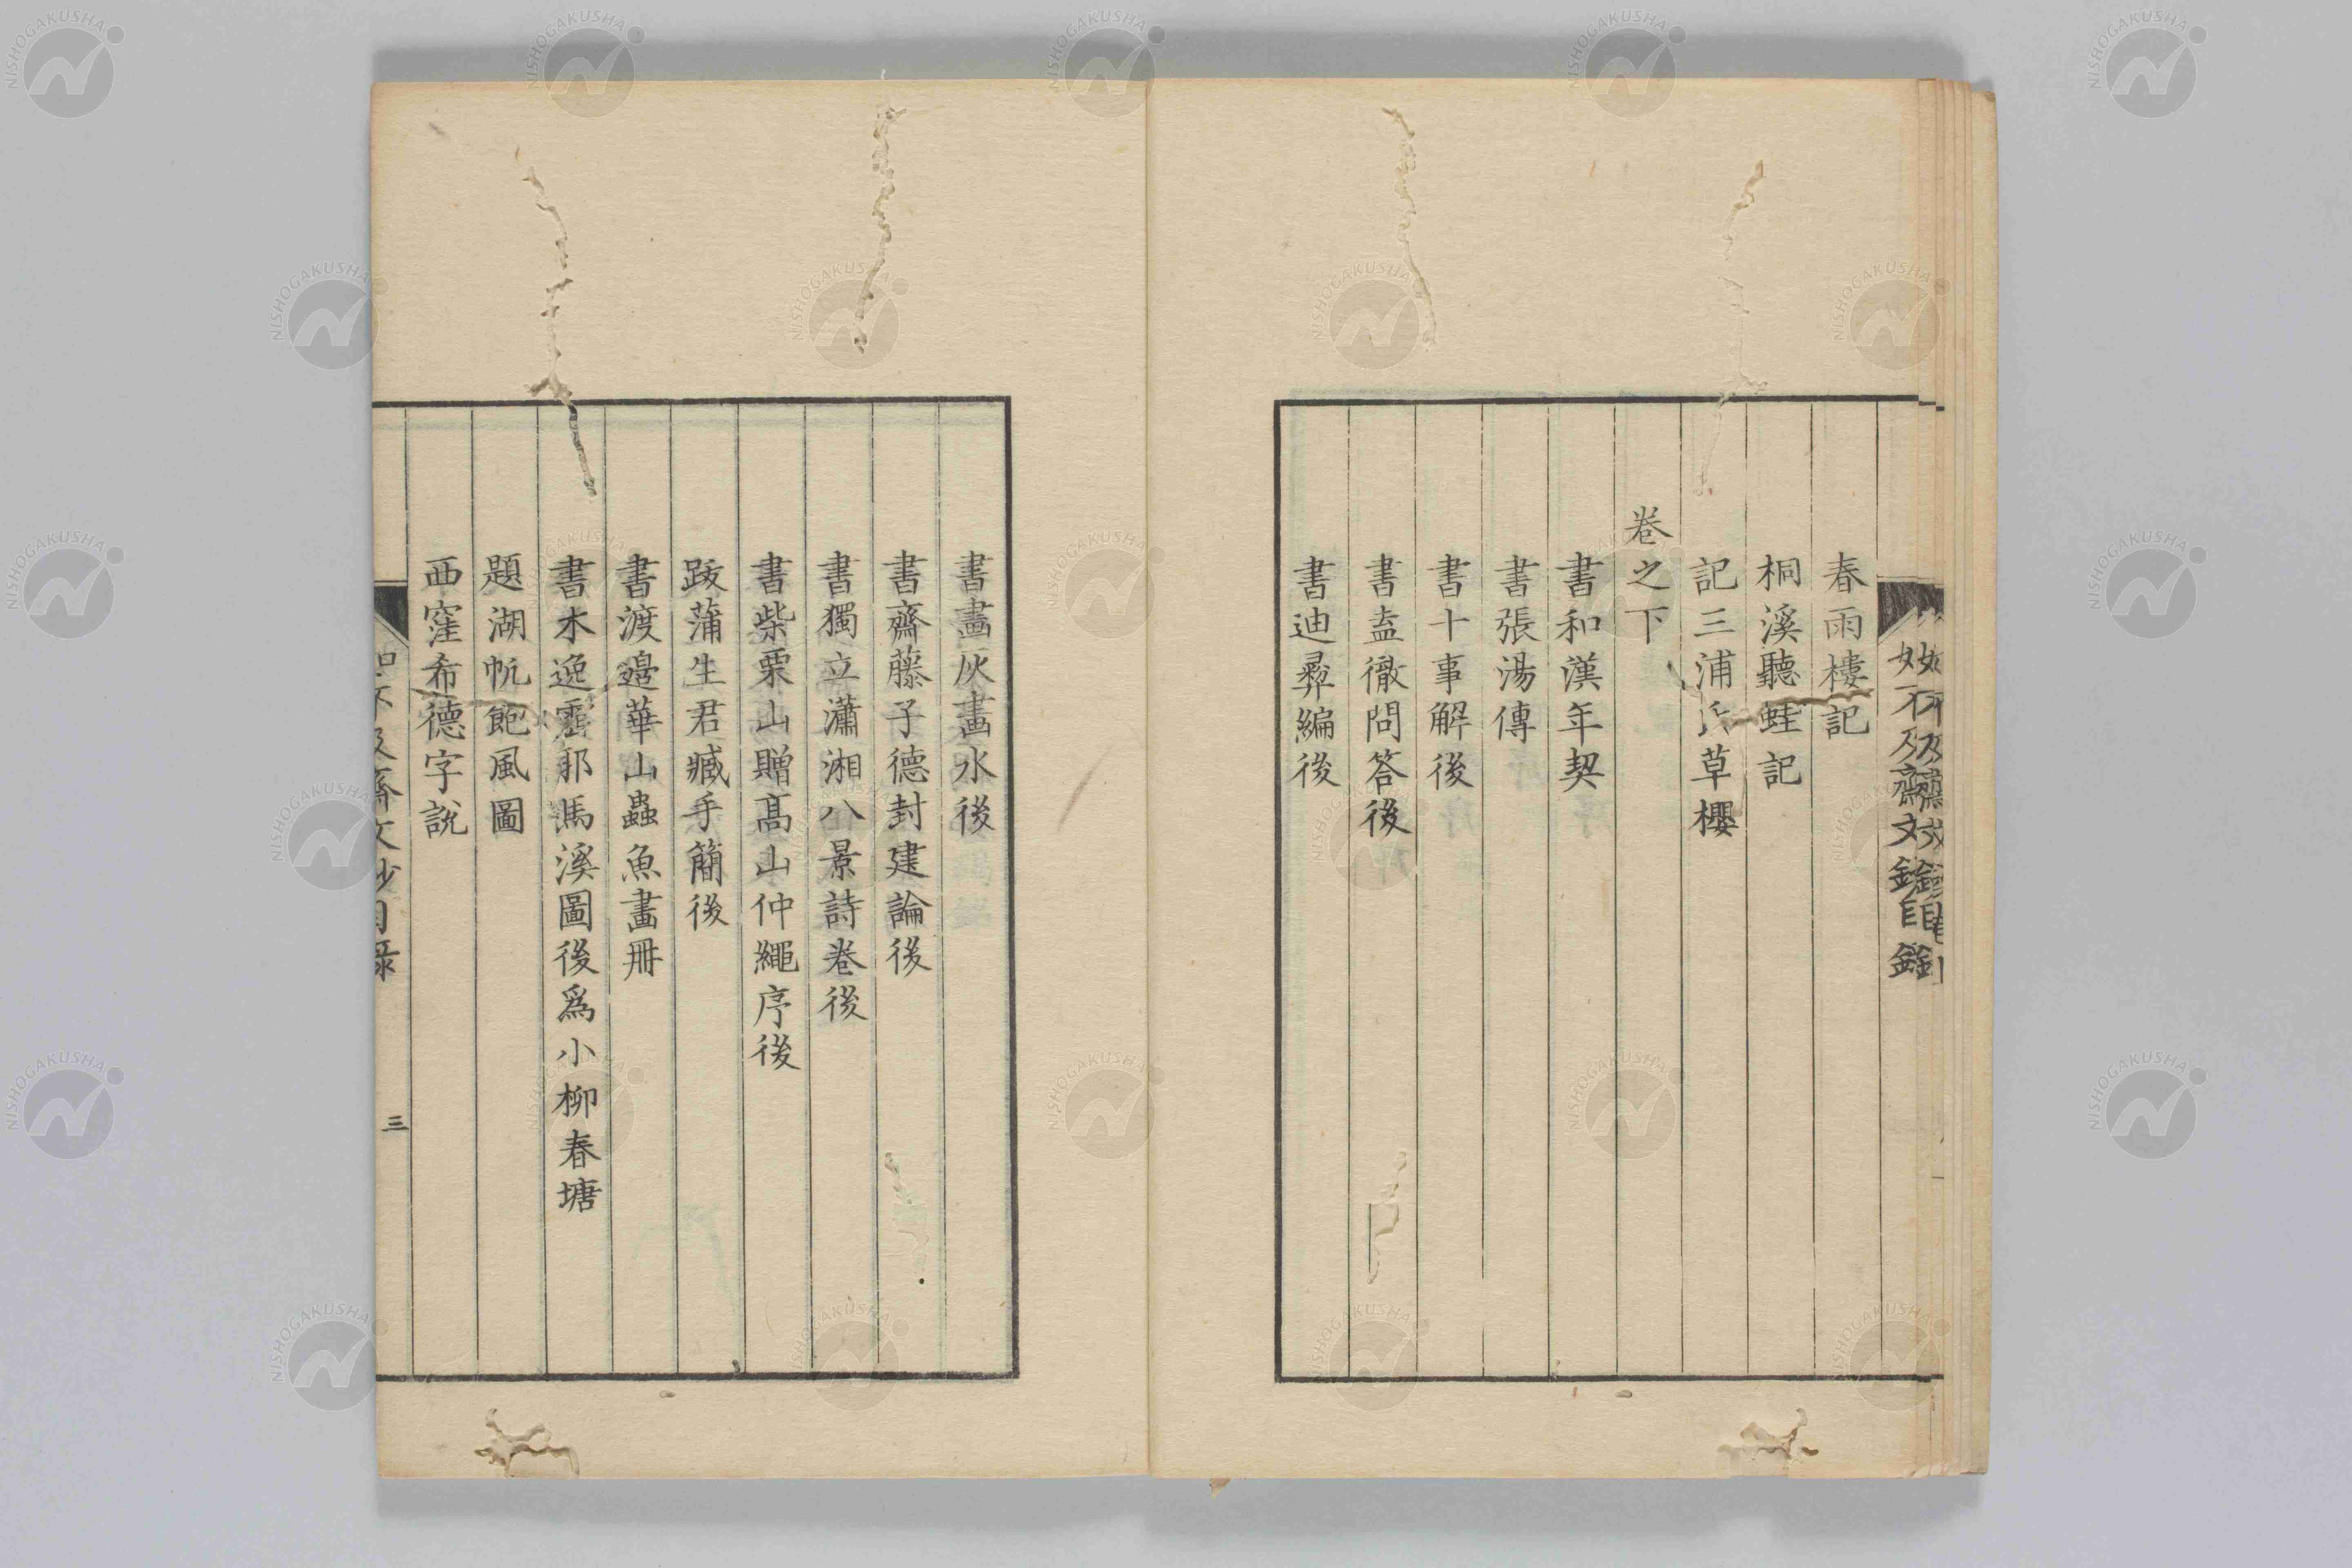 春雨樓記
桐溪聽蛙記
記三浦氏草櫻
卷之下
書和漢年契
書張湯傳
書十事解後
書盍徹問答後
書迪彛編後
書畫灰畫水後
書齋藤子德封建論後
書獨立瀟湘八景詩卷後
書柴栗山贈髙山仲繩序後
跋蒲生君臧手簡後
書渡邉華山蟲魚畫冊
書木逸雲耶馬溪圖後爲小柳春塘
題湖帆飽風圖
西窪希德字說
如不及齋文鈔目錄
三
NISHOGAKUSHA